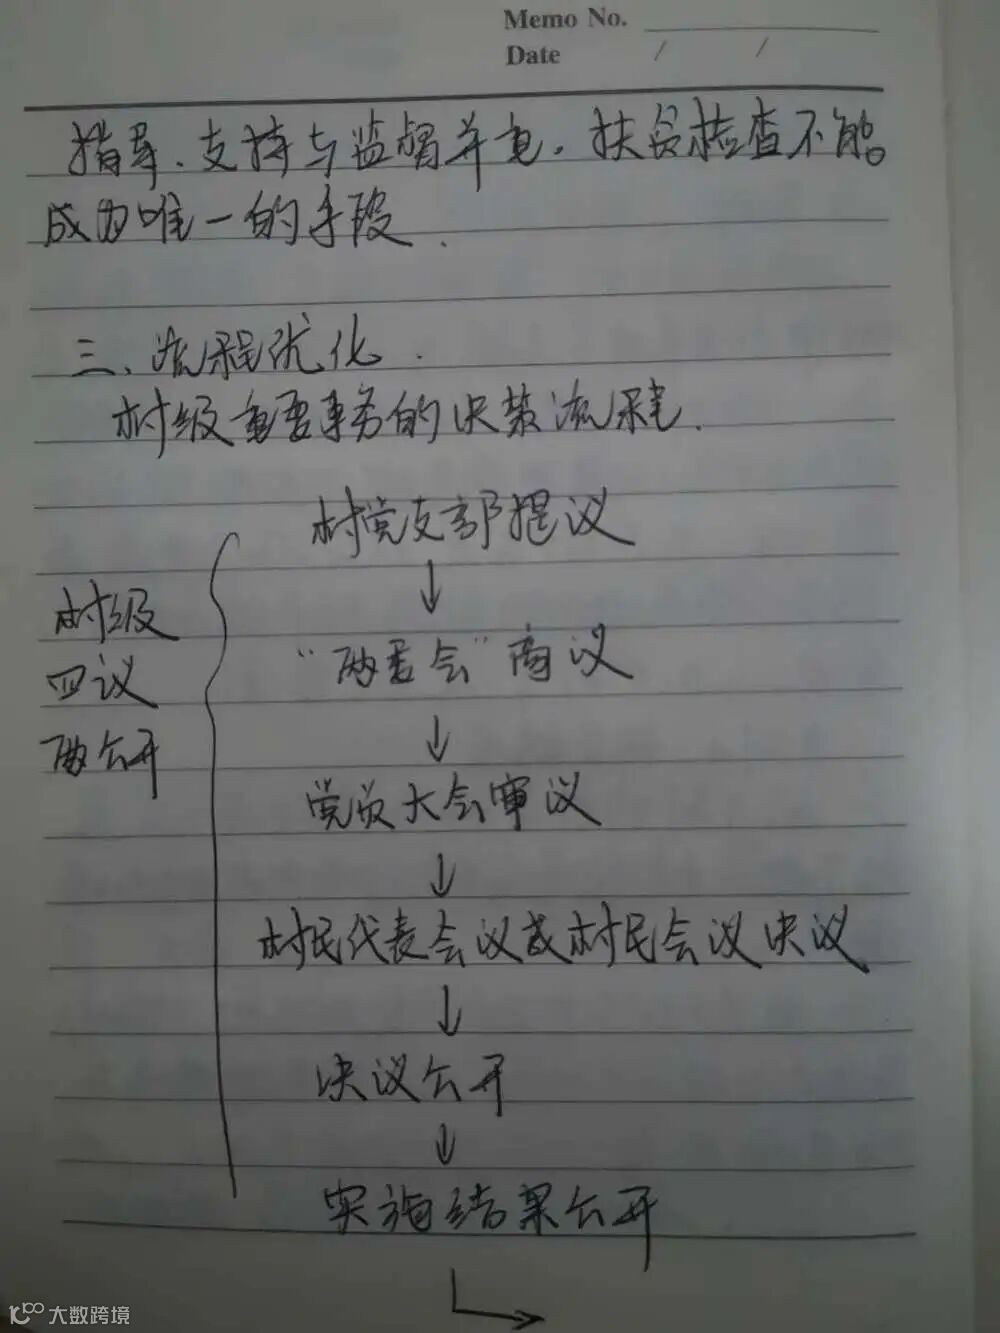 Memo No.
Date / /
指导、支持与监督并重。扶贫检查不能
成为唯一的手段.
三、流程优化.
村级重要事务的决策流程.
村党支部提议
↓
村级
“两委会”商议
四议
↓
两公开
党员大会审议
↓
村民代表会议或村民会议决议
↓
决议公开
↓
实施结果公开
大数跨境